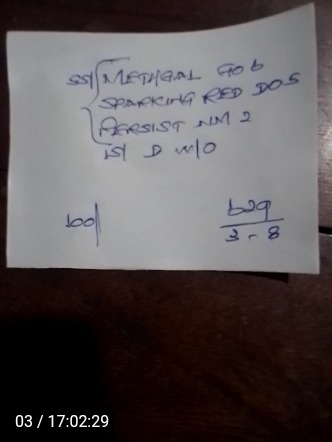 55/ METHGAL GO 6
SPARKING RED DOS
PERSIST NM 2
15/ D W/O
100/
629
3 - 8
03 / 17:02:29